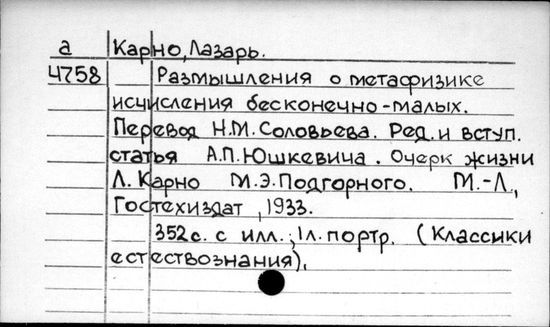 а Карно, Лазарь.
4758 Размышления о метафизике
исчисления бесконечно-малых.
Перевод Н.М. Соловьева. Ред. и вступ.
статья А.П. Юшкевича. Очерк жизни
Л. Карно М.Э. Подгорного. М.-Л.,
Гостехиздат, 1933.
352с. с илл.; 1л. портр. (Классики
естествознания).